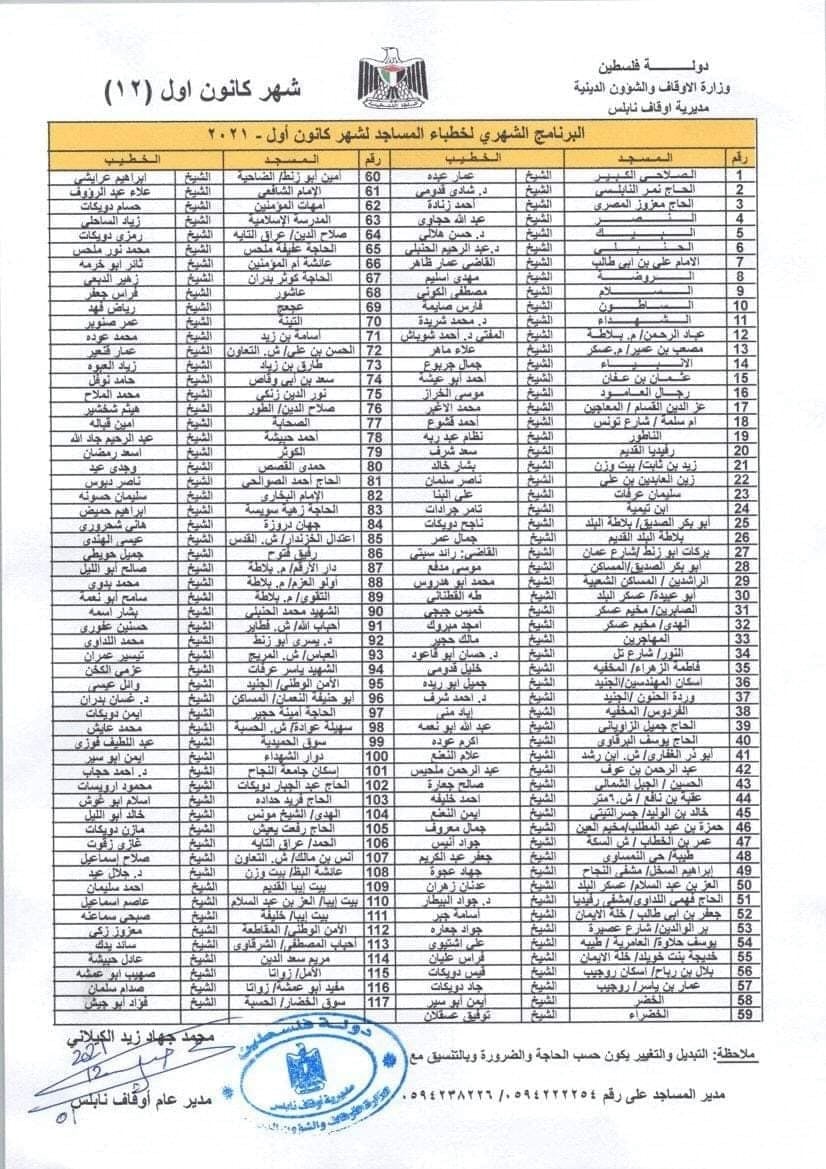 دولـــــة فلسطين
وزارة الاوقاف والشؤون الدينية
مديرية اوقاف نابلس
شهر كانون اول (١٢)
البرنامج الشهري لخطباء المساجد لشهر كانون أول - ٢٠٢١
رقم المـسـجـد الـخـطـيـب رقم المـسـجـد الـخـطـيـب
1 الصلاحي الكبير الشيخ عمار عبده 60 أمين أبو زنط/ الضاحية الشيخ ابراهيم عرايشي
2 الحاج نمر النابلسي الشيخ د. شادي قدومي 61 الإمام الشافعي الشيخ علاء عبد الرؤوف
3 الحاج معزوز المصري الشيخ أحمد زنادة 62 أمهات المؤمنين الشيخ حسام دويكات
4 النصر الشيخ عبد الله حجاوي 63 المدرسة الإسلامية الشيخ زياد الساحلي
5 البيك الشيخ د. حسن هلالي 64 صلاح الدين/ عراق التايه الشيخ رمزي دويكات
6 الحنبلي الشيخ د.عبد الرحيم الحنبلي 65 الحاجة عفيفة ملحس الشيخ محمد نور ملحس
7 الامام علي بن ابي طالب الشيخ القاضي عمار ظاهر 66 عائشة أم المؤمنين الشيخ ثائر ابو خرمه
8 الروضة الشيخ مهدي اسليم 67 الحاجة كوثر بدران الشيخ زهير الدبعي
9 السلام الشيخ مصطفى الكوني 68 عاشور الشيخ فراس جعفر
10 الساطون الشيخ فارس صايمة 69 عجعج الشيخ رياض فهد
11 الشهداء الشيخ د. محمد شريدة 70 التينة الشيخ عمر صنوبر
12 عباد الرحمن/ م. بلاطة الشيخ المفتي د. أحمد شوباش 71 أسامة بن زيد الشيخ محمد عوده
13 مصعب بن عمير/ م.عسكر الشيخ علاء ماهر 72 الحسن بن علي/ ش. التعاون الشيخ عمار قنعير
14 الانبياء الشيخ جمال جربوع 73 طارق بن زياد الشيخ زياد العبوه
15 عثمان بن عفان الشيخ أحمد أبو عيشة 74 سعد بن أبي وقاص الشيخ حامد نوفل
16 رجال العامود الشيخ موسى الخراز 75 نور الدين زنكي الشيخ محمد الملاح
17 عز الدين القسام / المعاجين الشيخ محمد الاغبر 76 صلاح الدين/ الطور الشيخ هيثم شخشير
18 ام سلمة / شارع تونس الشيخ أحمد قشوع 77 الصحابة الشيخ أمين قباله
19 الناطور الشيخ نظام عبد ربه 78 أحمد حبيشة الشيخ عبد الرحيم جاد الله
20 رفيديا القديم الشيخ سعد شرف 79 الكوثر الشيخ اسعد رمضان
21 زيد بن ثابت/ بيت وزن الشيخ بشار خالد 80 حمدي القصص الشيخ وجدي عيد
22 زين العابدين بن علي الشيخ ناصر سلمان 81 الحاج أحمد الصوالحي الشيخ ناصر دبوس
23 سليمان عرفات الشيخ علي البنا 82 الإمام البخاري الشيخ سليمان حسونه
24 ابن تيمية الشيخ تامر جرادات 83 الحاجة زهية سويسة الشيخ ابراهيم حميض
25 أبو بكر الصديق/ بلاطة البلد الشيخ ناجح دويكات 84 جهان دروزة الشيخ هاني شحروري
26 بلاطة البلد القديم الشيخ جمال عمر 85 اعتدال الخزندار/ ش. القدس الشيخ عيسى الهندي
27 بركات ابو زنط /شارع عمان الشيخ القاضي: رائد سبتي 86 رفيق فتوح الشيخ جميل حويطي
28 أبو بكر الصديق/المساكن الشيخ موسى مدفع 87 دار الأرقم/ م. بلاطة الشيخ صالح أبو الليل
29 الراشدين / المساكن الشعبية الشيخ محمد أبو هدروس 88 أولو العزم/ م. بلاطة الشيخ محمد بدوي
30 أبو عبيدة/ عسكر البلد الشيخ طه القطناني 89 التقوى/ م. بلاطة الشيخ سامح أبو نعمة
31 الصابرين/ مخيم عسكر الشيخ خميس جبجي 90 الشهيد محمد الحنبلي الشيخ بشار اسمه
32 الهدى/ مخيم عسكر الشيخ امجد مبروك 91 أحباب الله/ ش. فطاير الشيخ حسنين عفوري
33 المهاجرين الشيخ مالك حجير 92 د. يسرى أبو زنط الشيخ محمد اللداوي
34 النور/ شارع تل الشيخ د. حسان أبو قاعود 93 العباس/ ش. المريج الشيخ تيسير عمران
35 فاطمة الزهراء/ المخفيه الشيخ خليل قدومي 94 الشهيد ياسر عرفات الشيخ عزمي الكخن
36 اسكان المهندسين/الجنيد الشيخ جميل ابو ريده 95 الأمن الوطني/ الجنيد الشيخ وائل عيسى
37 وردة الحنون /الجنيد الشيخ د. احمد شرف 96 أبو حنيفة النعمان/ المساكن الشيخ د. غسان بدران
38 الفردوس/ المخفيه الشيخ إياد منى 97 الحاجة أمينة حجير الشيخ ايمن دويكات
39 الحاج جميل الزاوياني الشيخ عبد الله ابو نعمه 98 سهيلة عوادة/ ش. الحسبة الشيخ محمد عايش
40 الحاج يوسف البرقاوي الشيخ أكرم عوده 99 سوق الحميدية الشيخ عبد اللطيف فوزي
41 أبو ذر الغفاري/ ش. ابن رشد الشيخ علام النعنع 100 دوار الشهداء الشيخ أيمن ابو سير
42 عبد الرحمن بن عوف الشيخ عبد الرحمن ملحيس 101 إسكان جامعة النجاح الشيخ د. احمد حجاب
43 الحسين / الجبل الشمالي الشيخ صالح جعارة 102 الحاج عبد الجبار دويكات الشيخ محمود ارويسات
44 عقبة بن نافع / ش.٦متر الشيخ أحمد خليفه 103 الحاج فريد حداده الشيخ اسلام ابو غوش
45 خالد بن الوليد/ جسرالتيتي الشيخ ايمن النعنع 104 الهدى/ الشيخ مونس الشيخ خالد أبو الليل
46 حمزة بن عبد المطلب/مخيم العين الشيخ جمال معروف 105 الحاج رفعت يعيش الشيخ مازن دويكات
47 عمر بن الخطاب / ش السكة الشيخ جواد أنيس 106 الحمد/ عراق التايه الشيخ غازي زقوت
48 طيبة/ حي النمساوي الشيخ جعفر عبد الكريم 107 أنس بن مالك/ ش. التعاون الشيخ صلاح إسماعيل
49 إبراهيم السخل/ مشفى النجاح الشيخ جهاد عجوة 108 عائشة البظ/ بيت وزن الشيخ د. جلال عيد
50 العز بن عبد السلام/ عسكر البلد الشيخ عدنان زهران 109 بيت إيبا القديم الشيخ احمد سليمان
51 الحاج فهمي اللداوي/مشفى رفيديا الشيخ د. جواد البيطار 110 بيت إيبا/ العز بن عبد السلام الشيخ عاصم اسماعيل
52 جعفر بن أبي طالب / خلة الايمان الشيخ أسامة جبر 111 بيت إيبا/ خليفة الشيخ صبحي سماعنه
53 بر الوالدين/ شارع عصيرة الشيخ جواد جعاره 112 الأمن الوطني/ المقاطعة الشيخ معزوز زكي
54 يوسف حلاوة/ العامرية / طيبه الشيخ علي اشتيوي 113 أحباب المصطفى/ الشرقاوي الشيخ سائد يدك
55 خديجة بنت خويلد/ خلة الايمان الشيخ فراس عليان 114 مريم سعد الدين الشيخ عادل حبيشة
56 بلال بن رباح/ اسكان روجيب الشيخ قيس دويكات 115 الأمل/ زواتا الشيخ صهيب ابو عمشه
57 عمار بن ياسر/ روجيب الشيخ جاد دويكات 116 مفيد أبو عمشة/ زواتا الشيخ صدام سلمان
58 الخضر الشيخ ايمن أبو سير 117 سوق الخضار/ الحسبة الشيخ فؤاد أبو جيش
59 الخضراء الشيخ توفيق عسقلان
ملاحظة: التبديل والتغيير يكون حسب الحاجة والضرورة وبالتنسيق مع
مدير المساجد على رقم ٠٥٩٤٢٢٢٢٥٤/ ٠٥٩٤٢٣٨٢٢٦
محمد جهاد زيد الكيلاني
مدير عام أوقاف نابلس
دولة فلسطين
مديرية أوقاف نابلس
وزارة الأوقاف والشؤون الدينية
2021
12
01